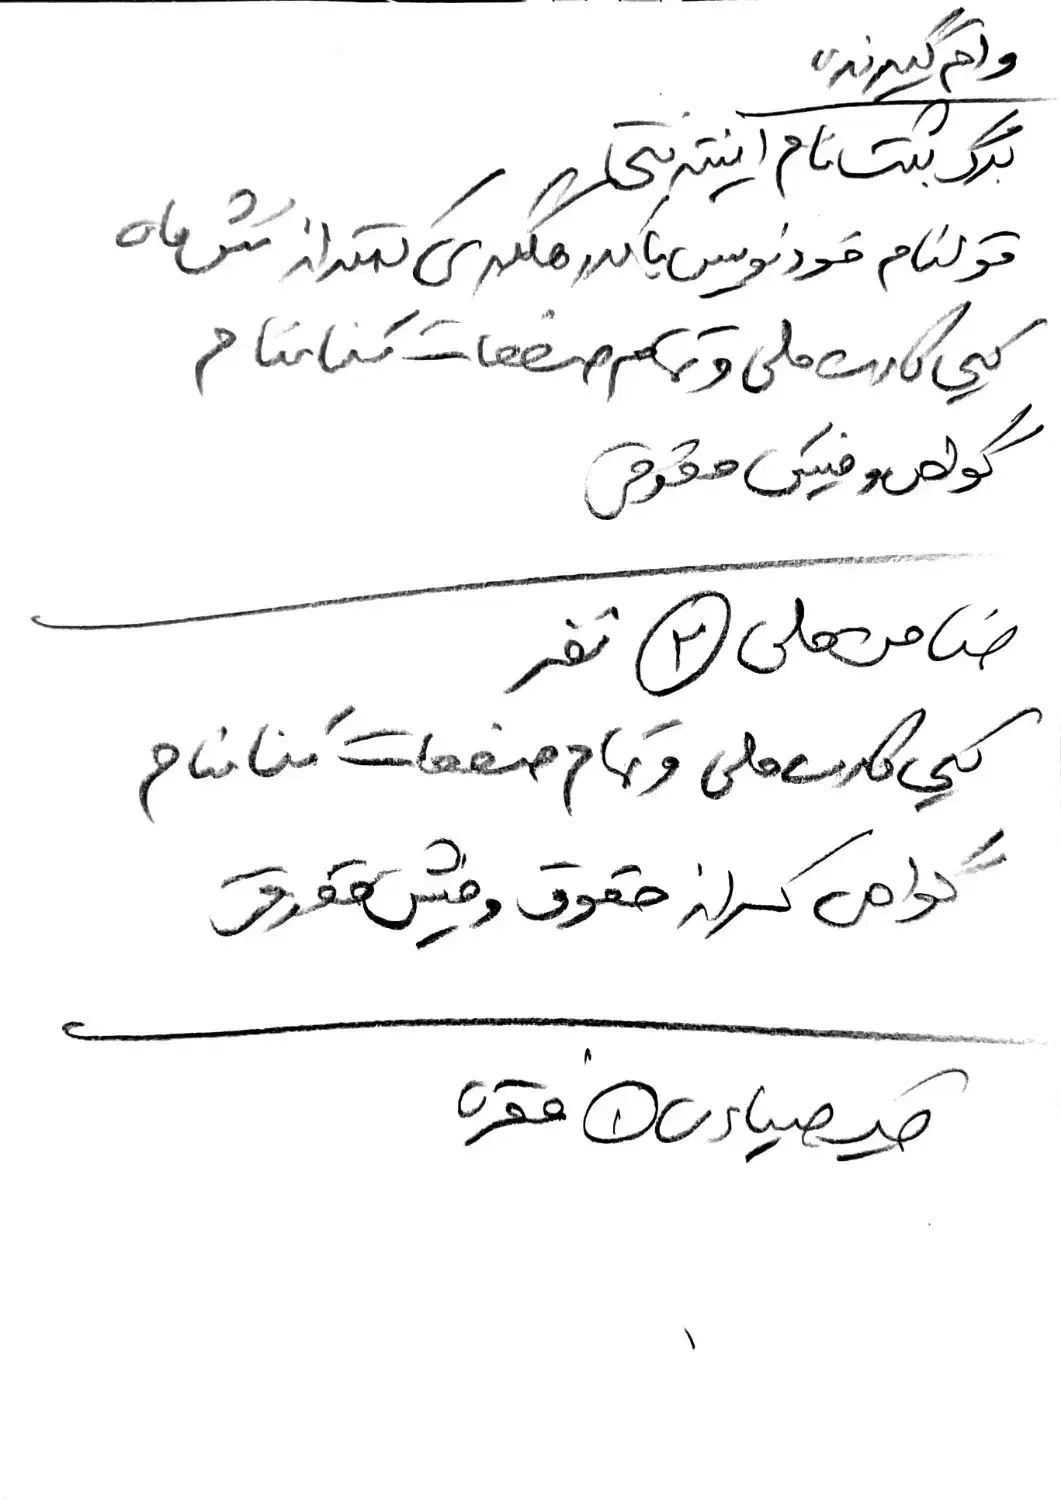 وام گیرنده
برگ ثبت نام اینترنتی
قولنامه خودنویس با کد رهگیری کمتر از شش ماه
کپی کارت ملی و تمام صفحات شناسنامه
گواهی و فیش حقوقی
ضامن ملی ۲ نفر
کپی کارت ملی و تمام صفحات شناسنامه
گواهی کسر از حقوق و فیش حقوقی
چک صیادی ۱ فقره